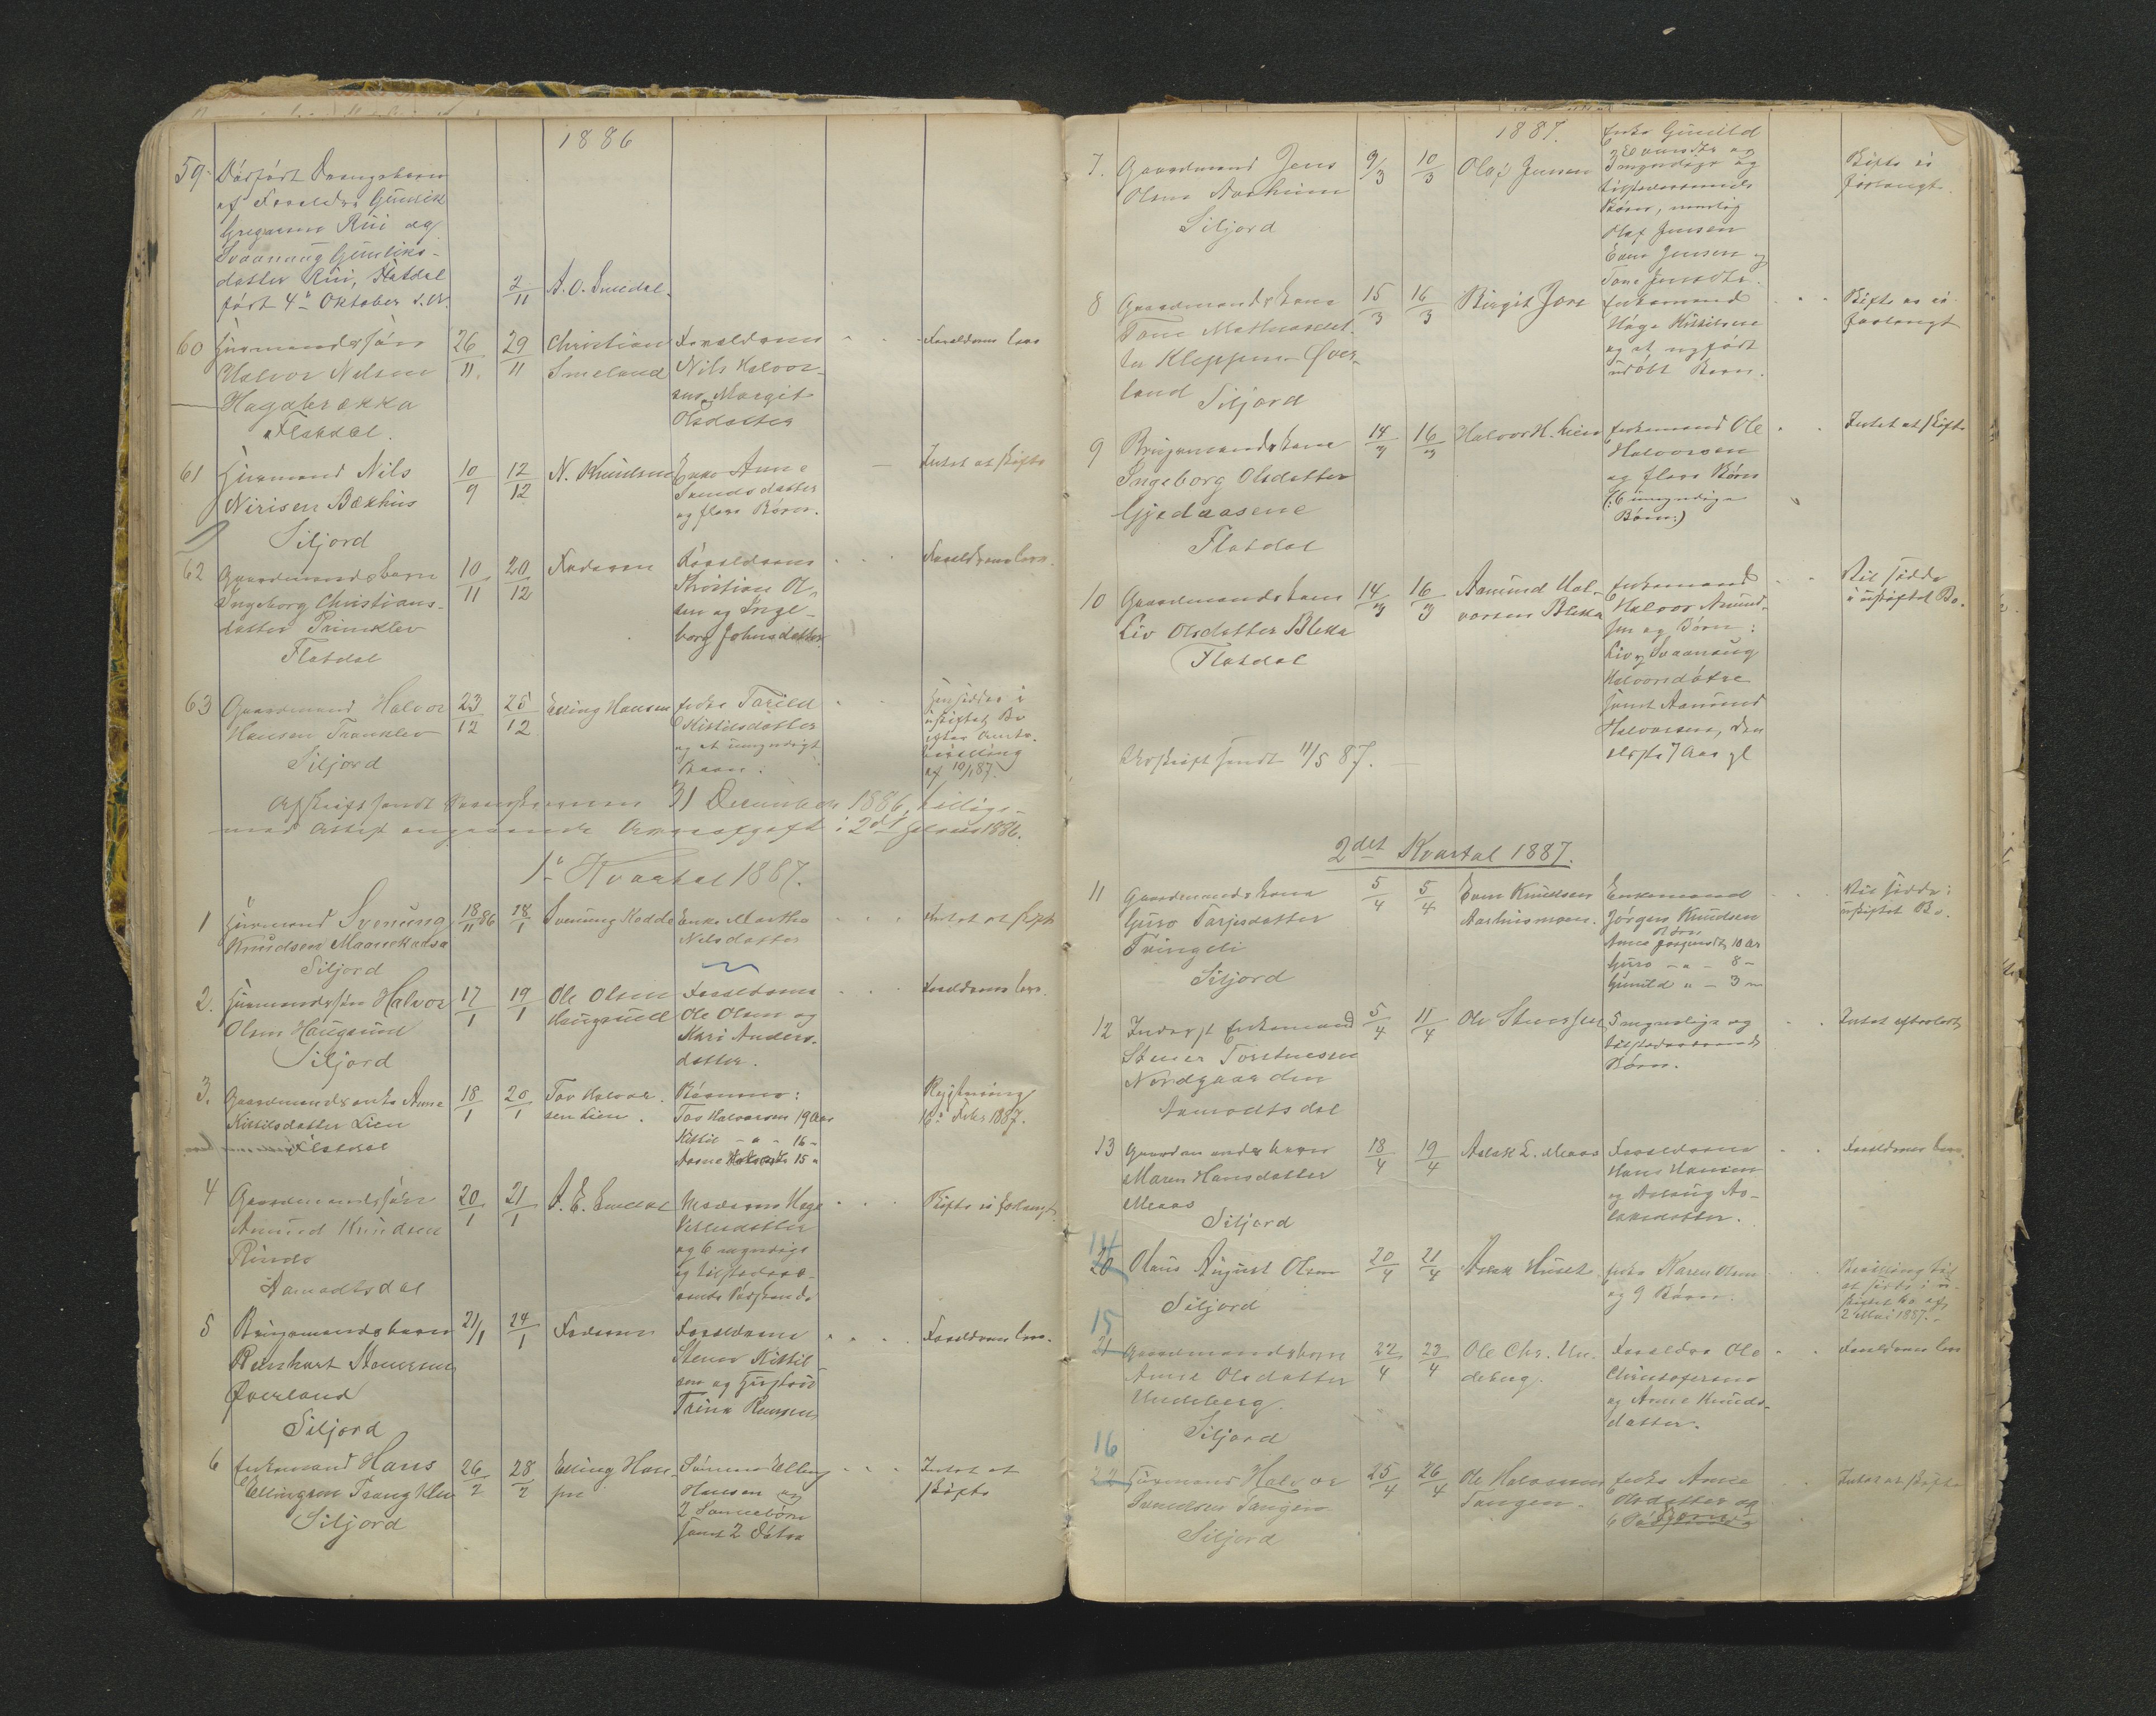 1886
59. Dødfødt Drengebarn
af Forældre Gunnik
Gregarsen Rui og
Svanaug Gunliks-
datter Rui, Flatdal
født 4de Oktober d. A.
2/11
A. O. Smedal.
60 Husmandssøn
Halvor Nilsen
Hagabrækka
Flatdal.
26/11. 29/11
Christian
Smeland
Forældrene
Nils Halvor-
sen, Margit
Olsdatter
Forældrene leve
61 Husmand Nils
Nirisen Bækhus
Siljord
10/9 12/12
N. Knudsen
Enke Anne
Svendsdatter
og flere Børn.
Intet at skifte
62 Gaardmandsbarn
Ingeborg Christians-
datter Trinklev
Flatdal
10/11 20/12
Faderen
Forældrene
Kristian Ol-
sen og Inge-
borg Johnsdatter.
Forældrene leve.
63 Gaardmand Halvor
Hansen Tranklev
Siljord
23/12 25/12
Elling Hansen
Enke Torild
Kittilsdatter
og et umyndigt
Barn.
Hensidder i
uskiftet Bo
efter Amts-
bevilling
af 10/1 87.
Afskrift sendt 31 December 1886, tillige-
med Attest angaaende Arveafgift i 2det Halvaar 1886.
1ste Kvartal 1887.
1 Husmand Svenung
Knudsen Maanekaasa
Siljord
18/11 86 18/1
Svenung Kaddo
Enke Martha
Nilsdatter
Intet at skifte
2. Husmandssøn Halvor
Olsen Haugsund
Siljord
17/1 19/1
Ole Olsen
Haugsund
Forældrene
Ole Olsen og
Kari Anders-
datter.
Forældrene leve.
3. Gaardmandsenke Anne
Kittilsdatter Lien
Flatdal
18/1 20/1
Tov Halvor-
sen Lien.
Børnene:
Tov Halvorsen 19 Aar
Kittil - " - 16 -
Aasne 15 "
Registrering
16de Febr 1887.
4 Gaardmandssøn
Amund Knudsen
Rindo
Aamodtsdal
20/1 21/1
A. E. Smedal
Moderen Hæge
og 6 myndige
og tilstedevæ-
rende Sødskende
Skifte ei forlangt
5 Brugsmandsbarn
Reinhart Stenersen
Øverland
Siljord
21/1 24/1
Faderen
Forældrene
Stener Kittil-
sen og Hustru
Trine
Forældrene leve.
6 Enkemand Hans
Ellingsen Trangklev
Siljord
26/2 28/2
Elling Han-
sen
Sønnen Elling
Hansen og
2 Sønnebørn
samt 2 Døtre
Intet at
skifte
1887.
7. Gaardmand Jens
Olsen Aarheim
Siljord
9/3 10/3
Olaf Jensen
Enke Gunild
Evensdtr og
3 myndige og
tilstedeværende
Børn, nemlig
Olaf Jensen
Even Jensen og
Tone Jensdtr.
Skifte ei
forlangt.
8 Gaardmandskone
Tone Mathiasdat-
ter Kleppen Øver-
land Siljord
15/3 16/3
Birgit Jore
Enkemand
Hæge Kittilsen
og et nyfødt
udøbt Barn.
Skifte er ei
forlangt
9 Brugsmandskone
Ingeborg Olsdatter
Gjedaasene
Flatdal
14/3 16/3
Halvor H. Lien
Enkemand Ole
Halvorsen
og flere Børn
(: 6 umyndige
Børn:)
Intet at skifte
10 Gaardmandskone
Liv Olsdatter Bleka
Flatdal
14/3 16/3
Aamund Hal-
vorsen Bleka
Enkemand
Halvor Amund-
sen og Børn:
Liv og Svanaug
Halvorsdøtre
samt Aamund
Halvorsen, den
ældste 7 Aar gl
Vil sidde
i uskiftet Bo.
Udskrift sendt 11/5 87.
2det Kvartal 1887.
11 Gaardmandskone
Guro Tarjesdatter
Tringeli
Siljord
5/4 5/4
Even Knudsen
Aarhusmoen.
Enkemand
Jørgen Knudsen
Børn
Anne Jørgensdtr 10 Aar
Guro - " - 8 -
Gunild " - 3 -
Vil sidde i
uskiftet Bo.
12 Inderst Enkemand
Stener Torstensen
Nordgaarden
Aamodtsdal
5/4 11/4
Ole Stenersen
5 myndige og
tilstedeværende
Børn.
Intet efterladt
13 Gaardmandsbarn
Maren Hansdatter
Moaas
Siljord
18/4 19/4
Aslak L. Moaas
Forældrene
Hans Hansen
og Aslaug As-
laksdatter.
Forældrene leve.
14
20 Olaus August Olsen
Siljord
20/4 21/4
Aslak Huset
Enke Karen Olsen
og 9 Børn.
Bevilling til
at sidde i u-
skiftet Bo af
2 Mai 1887.-
15
21 Gaardmandsbarn
Anne Olsdatter
Undeberg.
Siljord
22/4 23/4
Ole Chr. Un-
deberg.
Forældre Ole
Christofersen
og Anne Knuds-
datter.
Forældrene leve
16
22 Husmand Halvor
Svendsen Tangen
Siljord
25/4 26/4
Ole Halvorsen
Tangen.
Enke Anne
Olsdatter og
6 Børn
Intet at skifte